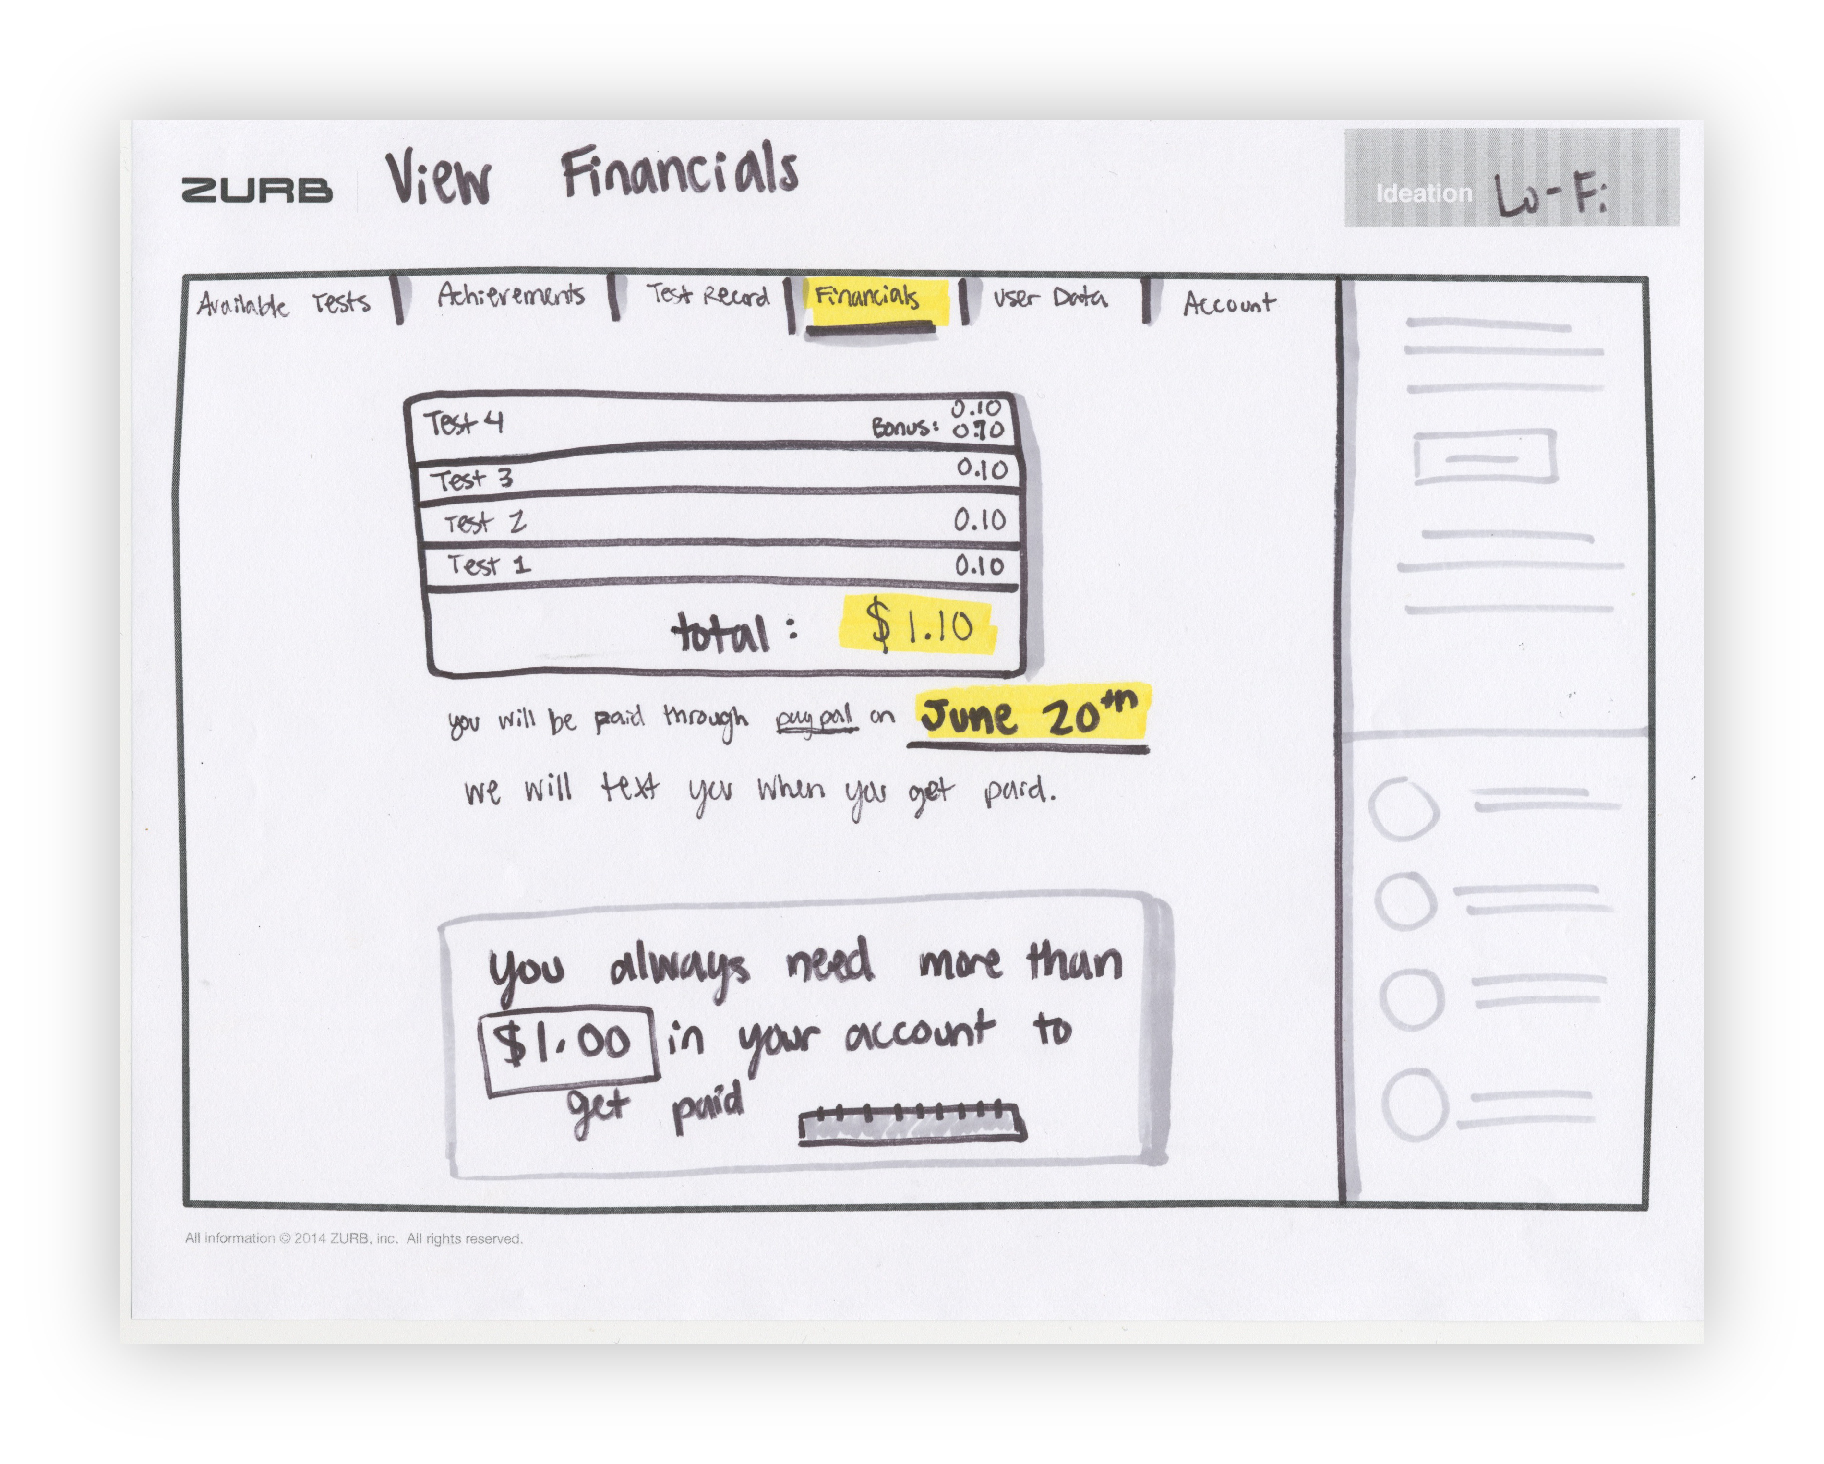 ZURB View Financials
Ideation Lo-Fi
Available Tests Achievements Test Record Financials User Data Account
Test 4 0.10
Bonus: 0.70
Test 3 0.10
Test 2 0.10
Test 1 0.10
total: $1.10
you will be paid through paypal on June 20th
we will text you when you get paid.
you always need more than
$1.00 in your account to
get paid
All information © 2014 ZURB, inc. All rights reserved.